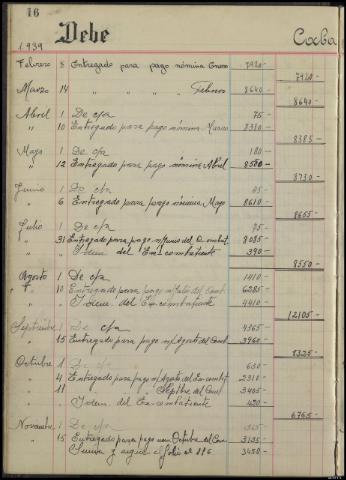 16
Debe
Caba
1939
Febrero 8 Entregado para pago nómina Enero 7920-
7920-
Marzo 14 " " " " Febrero 8640-
8640-
Abril 1 De c/a 75-
" 10 Entregado para pago nómina Marzo 8310-
8385-
Mayo 1 De c/a
" 12 Entregado para pago nómina Abril
8730-
Junio 1 De c/a 45-
" 6 Entregado para pago nómina Mayo 8610-
8655-
Julio 1 De c/a 75-
" 31 Entregado para pago n/Junio del Combat. 8085-
" " Idem del Ex-combatiente 390-
8550-
Agosto 1 De c/a 1410-
" 10 Entregado para pago n/Julio del Comb. 6285-
" " Idem del Excombatiente 4410-
12105-
Septiembre 1 De c/a 4365-
" 15 Entregado para pago n/Agosto del Comb 3960-
8325-
Octubre 1 De c/a 630-
" 4 Entregado para pago n/Agosto del Excombat 2310-
" 11 " " " Septbre del Comb 3405-
" " Idem del Excombatiente 420-
6765-
Novembre 1 De c/a
" 15 Entregado para pago nom Octubre del Com 3135-
Suma y sigue al folio al 196 3450-